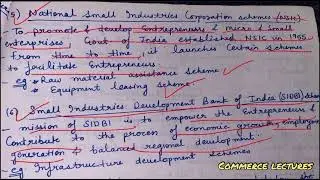 (5) National Small Industries Corporation schemes (NSIC)
To promote & develop Entrepreneurs & micro & small
enterprises, Govt of India established NSIC in 1955
from time to time it launches certain schemes
to facilitate Entrepreneurs.
eg • Raw material assistance scheme
• Equipment leasing scheme.
(6) Small Industries Development Bank of India (SIDBI)
mission of SIDBI is to empower the Entrepreneurs &
Contribute to the process of economic growth, employment
generation & balanced regional development.
eg Infrastructure development schemes
Commerce lectures